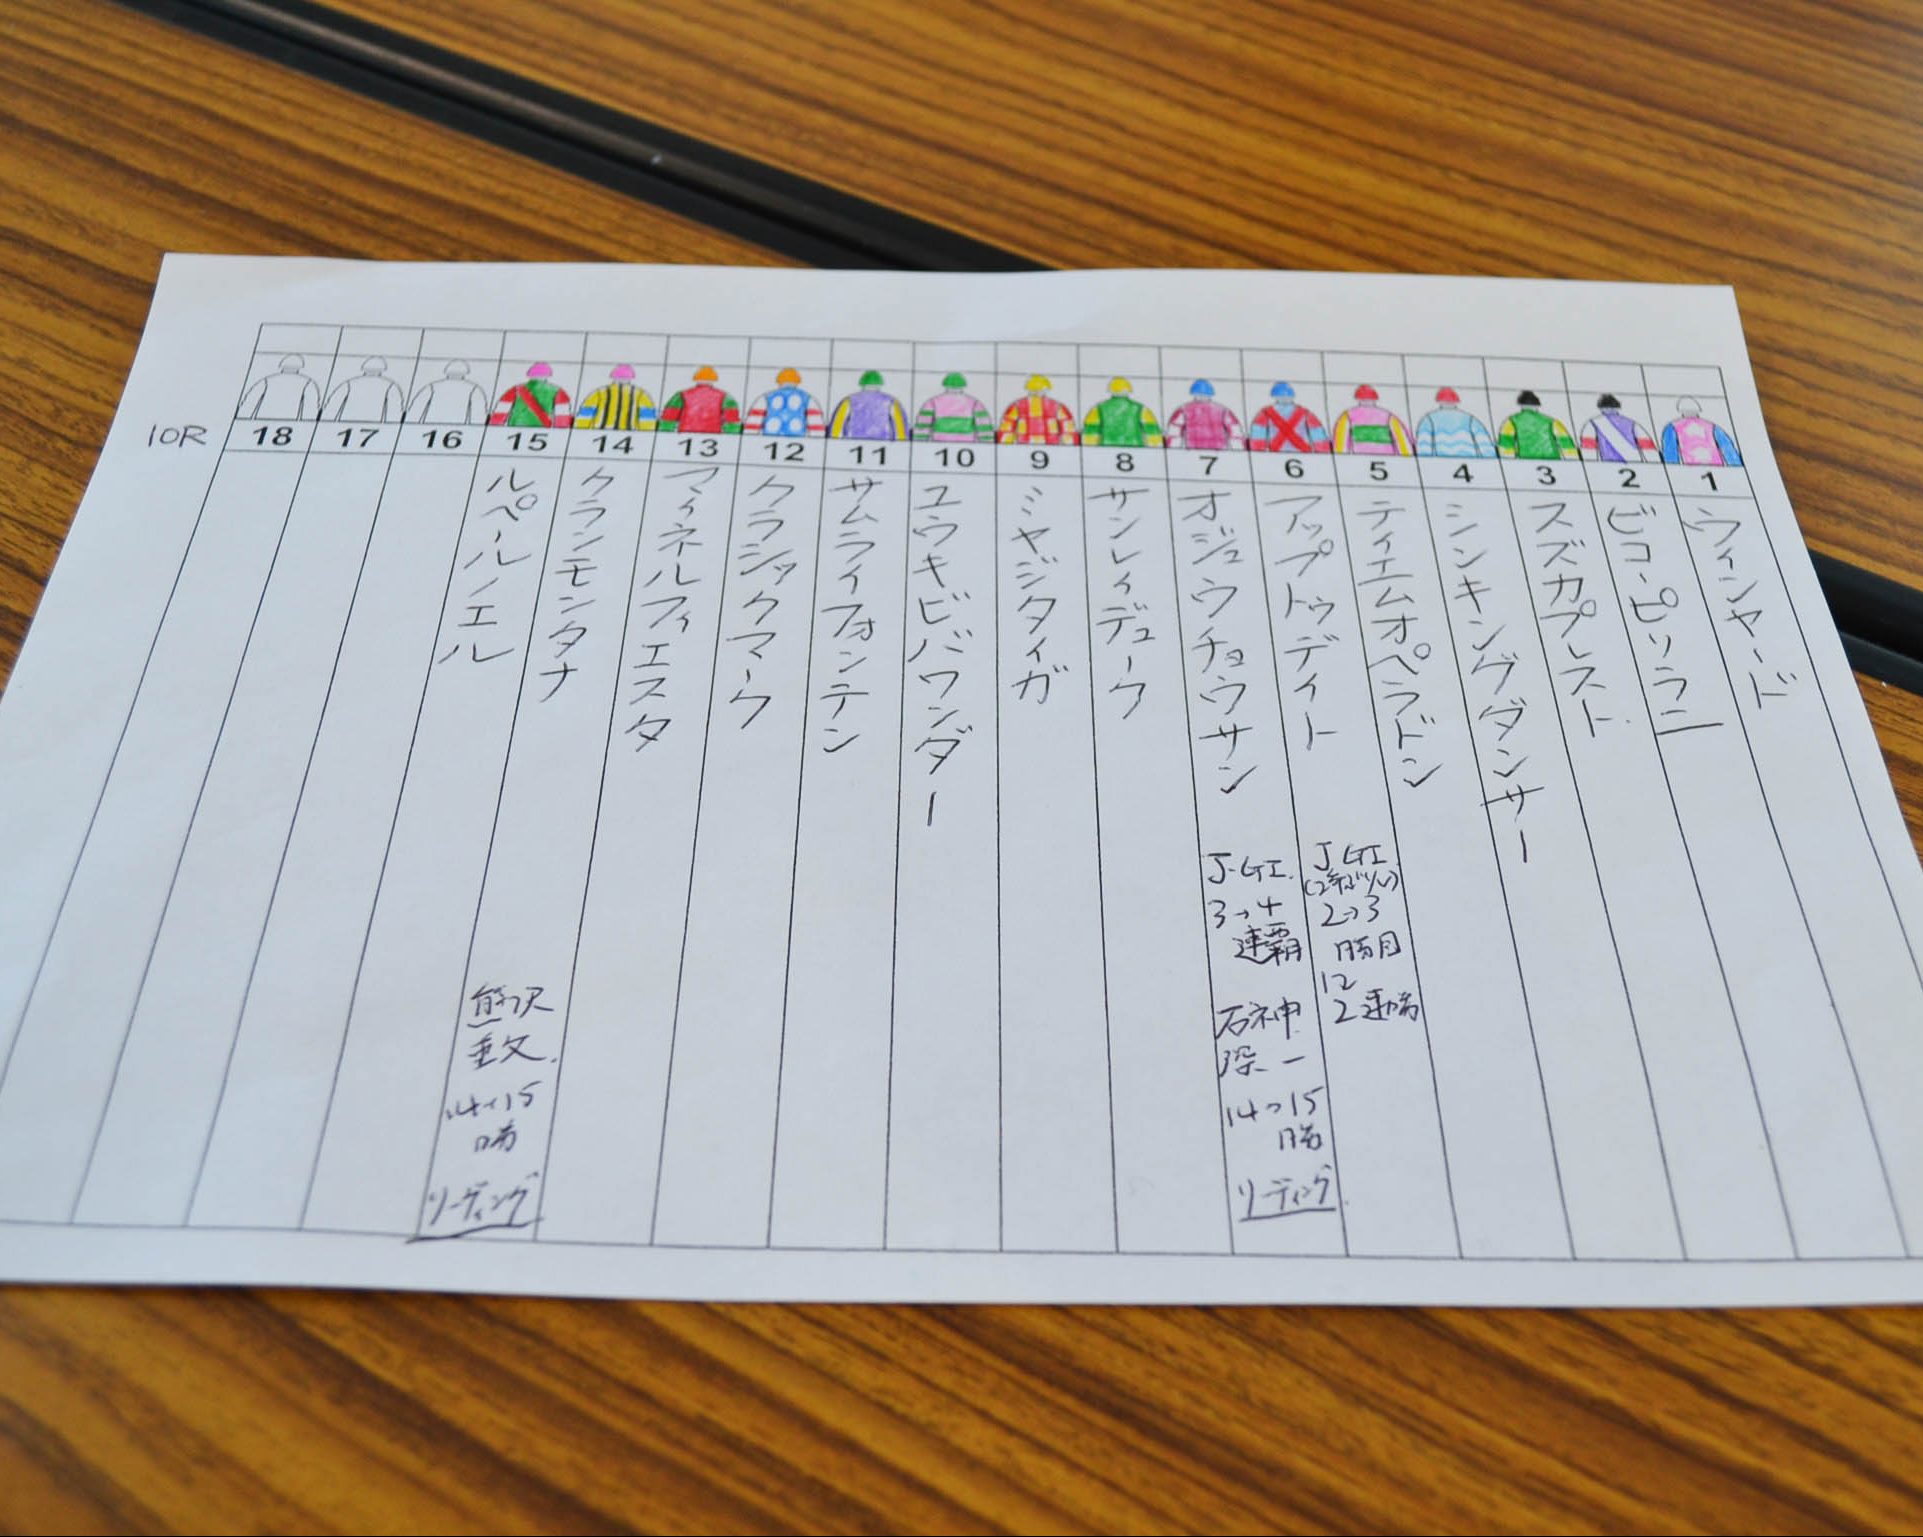 10R 18 17 16 15 14 13 12 11 10 9 8 7 6 5 4 3 2 1
ウィンヤード
ビコーピリラニ
スズカプレスト
シンキングダンサー
ティエムオペラドン
アップトゥデイト
J GI
(2年ぶり)
2→3
勝目
12
2連勝
オジュウチョウサン
J・GI
3→4
連覇
石神
深一
14→15
勝
リーディング
サンレイデューク
ミヤジタイガ
ユウキビバワンダー
サムライフォンテン
クラシックマーク
マイネルフィエスタ
クランモンタナ
ルペールノエル
熊沢
重文
14→15
勝
リーディング